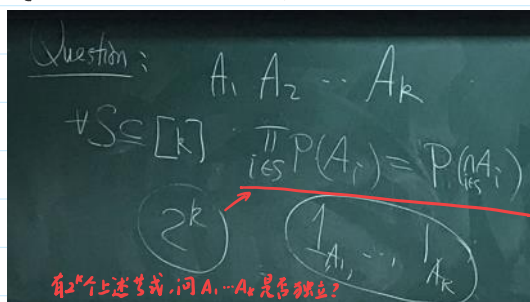 Question:
A₁ A₂ ⋯ A_k
∀S⊆[k] ∏_{i∈S} P(A_i) = P(∩_{i∈S} A_i)
2^k 1_{A₁}, ⋯, 1_{A_k}
有2^k个上述等式,问A₁⋯A_k是否独立?